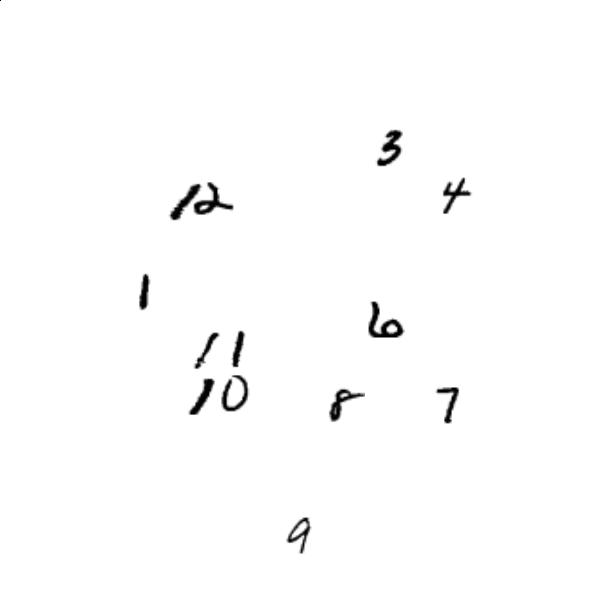 3
12 4
1
6
11
10 8 7
9